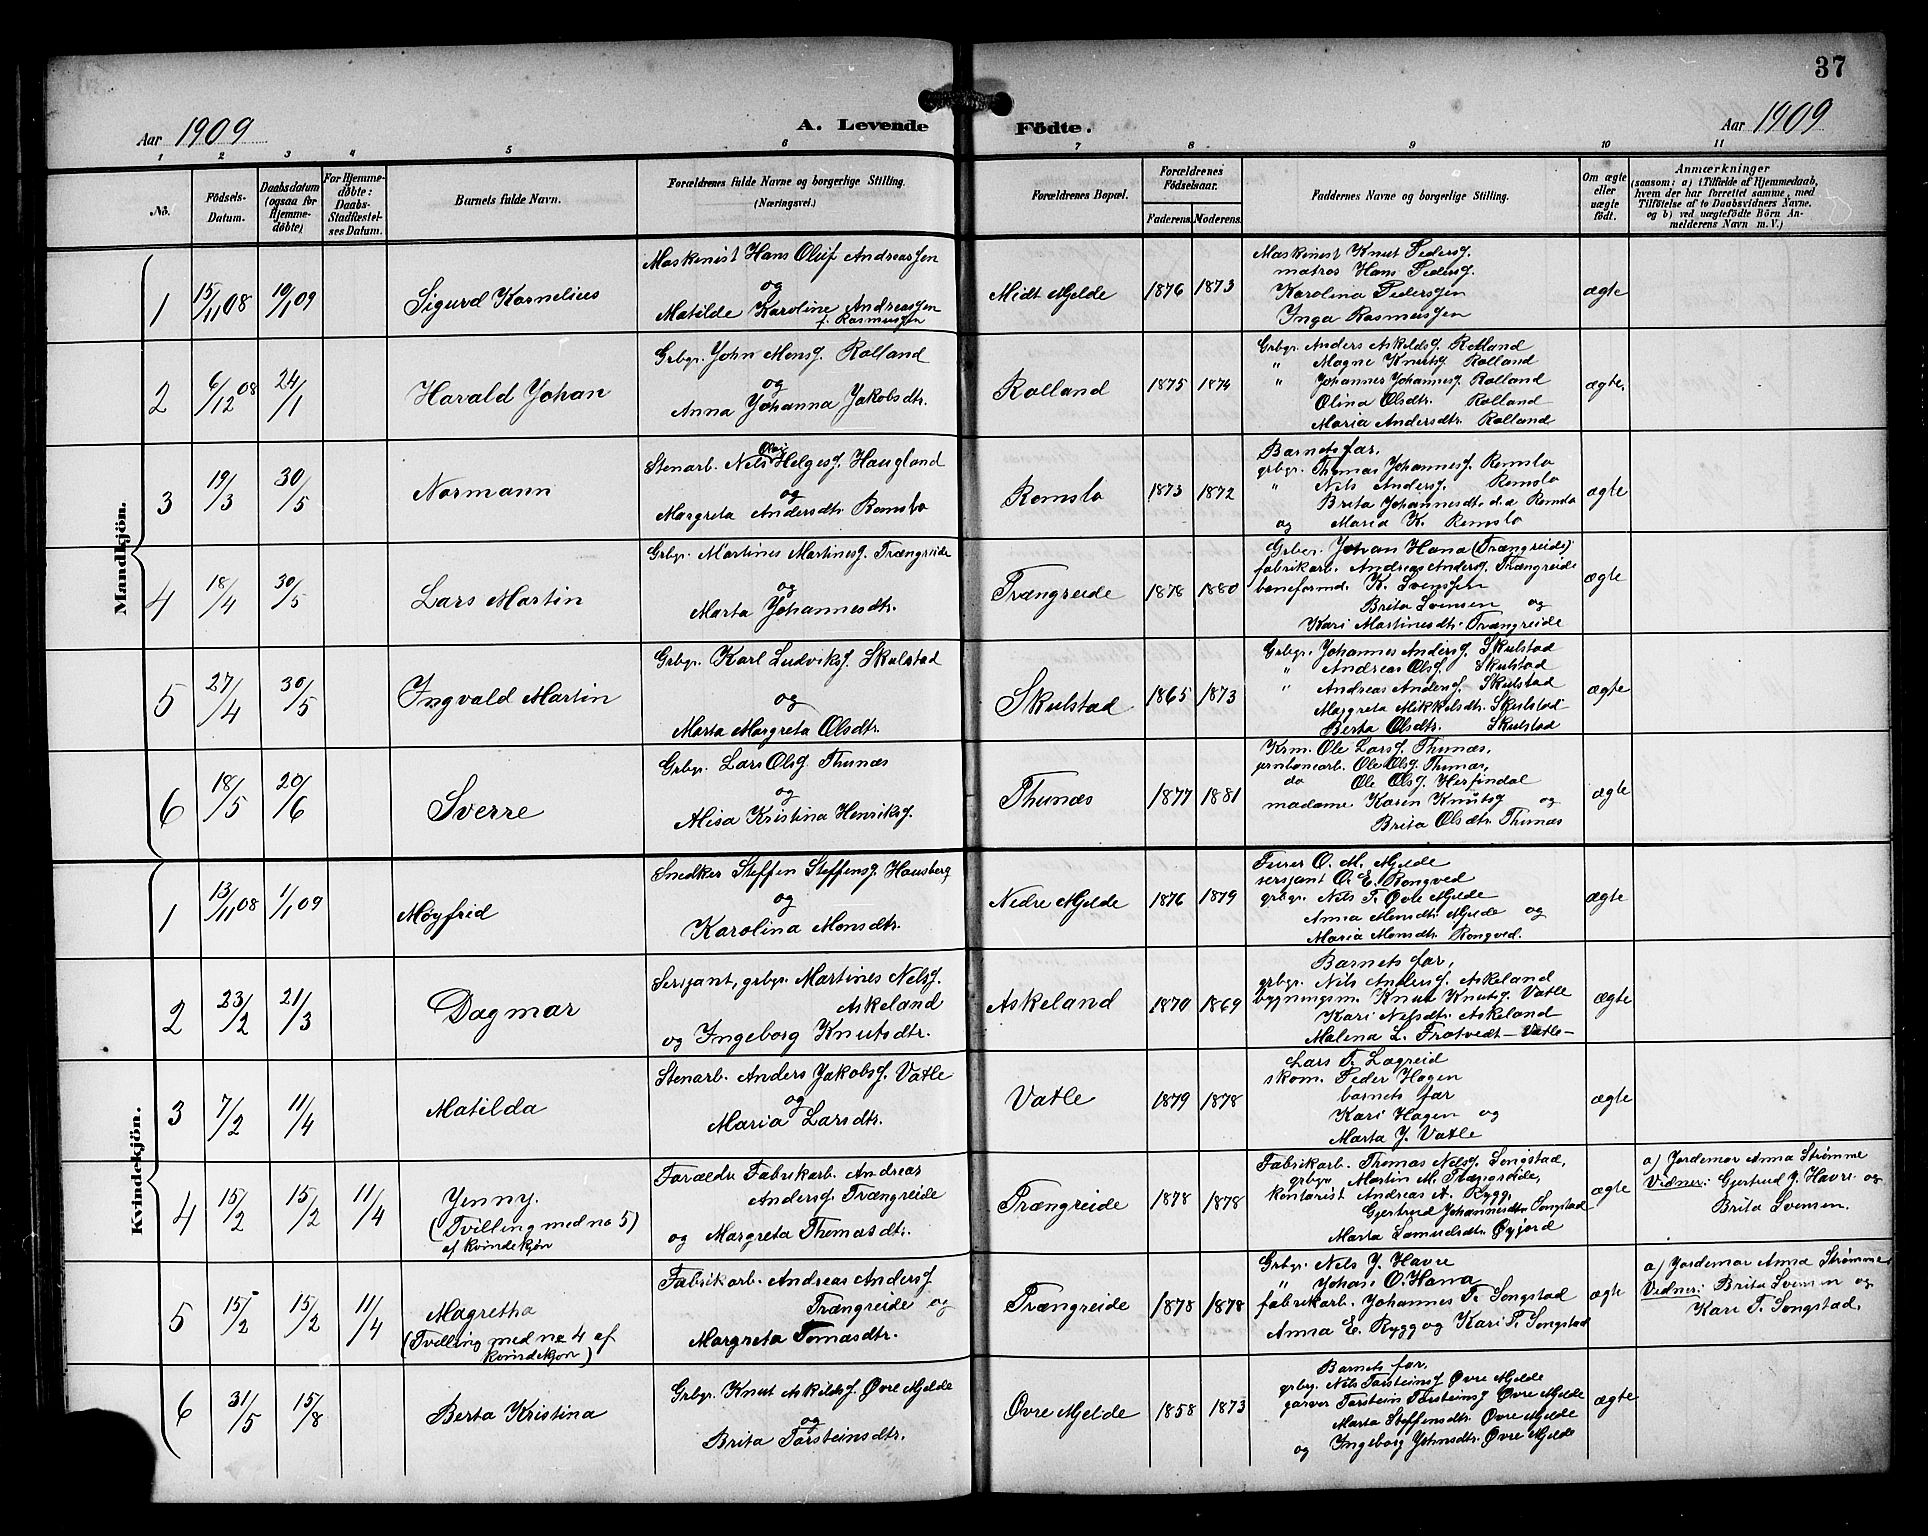 37
Aar 1909
A. Levende
Födte.
Aar 1909
1 2 3 4 5 6 7 8 9 10 11
No.
Födsels-Datum.
Daabsdatum (ogsaa for Hjemmedöbte)
For Hjemmedöbte: Daabs-Stadfæstelses Datum.
Barnets fulde Navn.
Forældrenes fulde Navne og borgerlige Stilling.
(Næringsvei.)
Forældrenes Bopæl.
Forældrenes Födselsaar.
Faderens. Moderens.
Faddernes Navne og borgerlige Stilling.
Om ægte eller uægte födt.
Anmærkninger
(saasom: a) i Tilfælde af Hjemmedaab, hvem der har forrettet samme, med Tilföielse af to Daabsvidners Navne. og b) ved uægtefödte Börn Anmelderens Navn m. V.)
Mandkjön.
1 15/11 08 10/1 09 Sigurd Kornelius
Maskinist Hans Oluf Andreassen
og
Matilde Karoline Andreassen
f. Rasmussen
Midt Mjelde 1876 1873
Maskinist Knut Peders.
matros Hans Peders.
Karolina Pederssen
Inga Rasmussen
ægte
2 6/12 08 24/1 Harald Johan
Grbgr. John Mons. Rolland
og
Anna Johanna Jakobsdtr.
Rolland 1875 1874
Grbgr. Anders Askilds. Rolland
" Magne Knuts. Rolland
" Johannes Johannes. Rolland
Olina Olsdtr. Rolland
Maria Andersdtr. Rolland
ægte.
3 19/3 30/5 Normann
Stenarb. Nils Olai Helges. Haugland
og
Margreta Andersdtr. Romslo
Romslo 1873 1872
Barnets far,
grbgr. Thomas Johannes. Romslo
" Nils Anders. Romslo
Brita Johannesdtr. d.æ. Romslo
og Maria K. Romslo
ægte
4 18/4 30/5 Lars Martin
Grbgr. Martines Martines. Trængreide
og
Marta Johannesdtr.
Trængreide 1878 1880
Grbgr. Johan Hana (Trængreide)
fabrikarb. Andreas Anders. Trængreide
baneformd. K. Svenssen
Brita Svensen og
Kari Martinesdtr. Trængreide
ægte
5 27/4 30/5 Ingvald Martin
Grbgr. Karl Ludviks. Skulstad
og
Marta Margreta Olsdtr.
Skulstad 1865 1873
Grbgr. Johannes Anders. Skulstad
" Andreas Ols. Skulstad
" Andreas Anders. Skulstad
Margreta Mikkelsdtr. Skulstad
Berta Olsdtr. Skulstad
ægte
6 18/5 20/6 Sverre
Grbgr. Lars Ols. Thunæs
og
Alisa Kristina Henriks.
Thunæs 1877 1881
Krm. Ole Lars. Thunæs,
jernbanearb. Ole Ols. Thunæs,
do Ole Ols. Herfindal
madame Karin Knuts. og
Brita Olsdtr. Thunæs
ægte
Kvindekjön.
1 13/11 08 1/1 09 Møyfrid
Snedker Steffen Steffens. Hausberg
og
Karolina Monsdtr.
Nedre Mjelde 1876 1879
Furer O. M. Mjelde
sersjant O. E. Rongved
grbgr. Nils T. Øvre Mjelde
Anna Monsdtr. Mjelde og
Maria Monsdtr. Rongved.
ægte
2 23/2 21/3 Dagmar
Sersjant, grbgr. Martines Nels.
Askeland
og Ingeborg Knutsdtr.
Askeland 1870 1869
Barnets far,
grbgr. Nils Anders. Askeland
bygningsm. Knut Knuts. Vatle
Kari Nelsdtr. Askeland
Malena L. Trotvedt - Vatle -
ægte
3 7/2 11/4 Matilda
Stenarb. Anders Jakobs. Vatle
og
Maria Larsdtr.
Vatle 1879 1878
Lars T. Lægreid
skom. Peder Hagen
barnets far
Kari Hagen og
Marta J. Vatle
ægte
4 15/2 15/2 11/4 Jenny.
(Tvilling med no 5)
af kvindekjøn
Forældr. Fabrikarb. Andreas
Anders. Trængreide
og Margreta Thomasdtr.
Trængreide 1878 1878
Fabrikarb. Thomas Nels. Songstad,
grbgr. Martin M. Trængreide,
kontorist Andreas A. Rygg,
Gjertrud Johannesdtr. Songstad
Marta Samuelsdtr. Øyjord
ægte
a) Jordemor Anna Strømme
Vidner: Gjertrud J. Havre og
Brita Svensen.
5 15/2 15/2 11/4 Magretha
(Tvilling med no 4 af
kvindekjøn)
Fabrikarb. Andreas Anders.
Trængreide og
Margreta Tomasdtr.
Trængreide 1878 1878
Grbgr. Nels J. Havre
" Johan O. Hana
fabrikarb. Johannes T. Songstad
Anna E. Rygg og Kari T. Songstad
ægte
a) Jordemor Anna Strømme
Vidner: Brita Svensen og
Kari T. Songstad.
6 31/5 15/8 Berta Kristina
Grbgr. Knut Askilds. Øvre Mjelde
og
Brita Torsteinsdtr.
Øvre Mjelde 1858 1873
Barnets far,
grbrg. Nils Torsteins. Øvre Mjelde
garver Torstein Torsteins. Øvre Mjelde
Marta Steffensdtr. Øvre Mjelde
og Ingeborg Johnsdtr. Øvre Mjelde
ægte